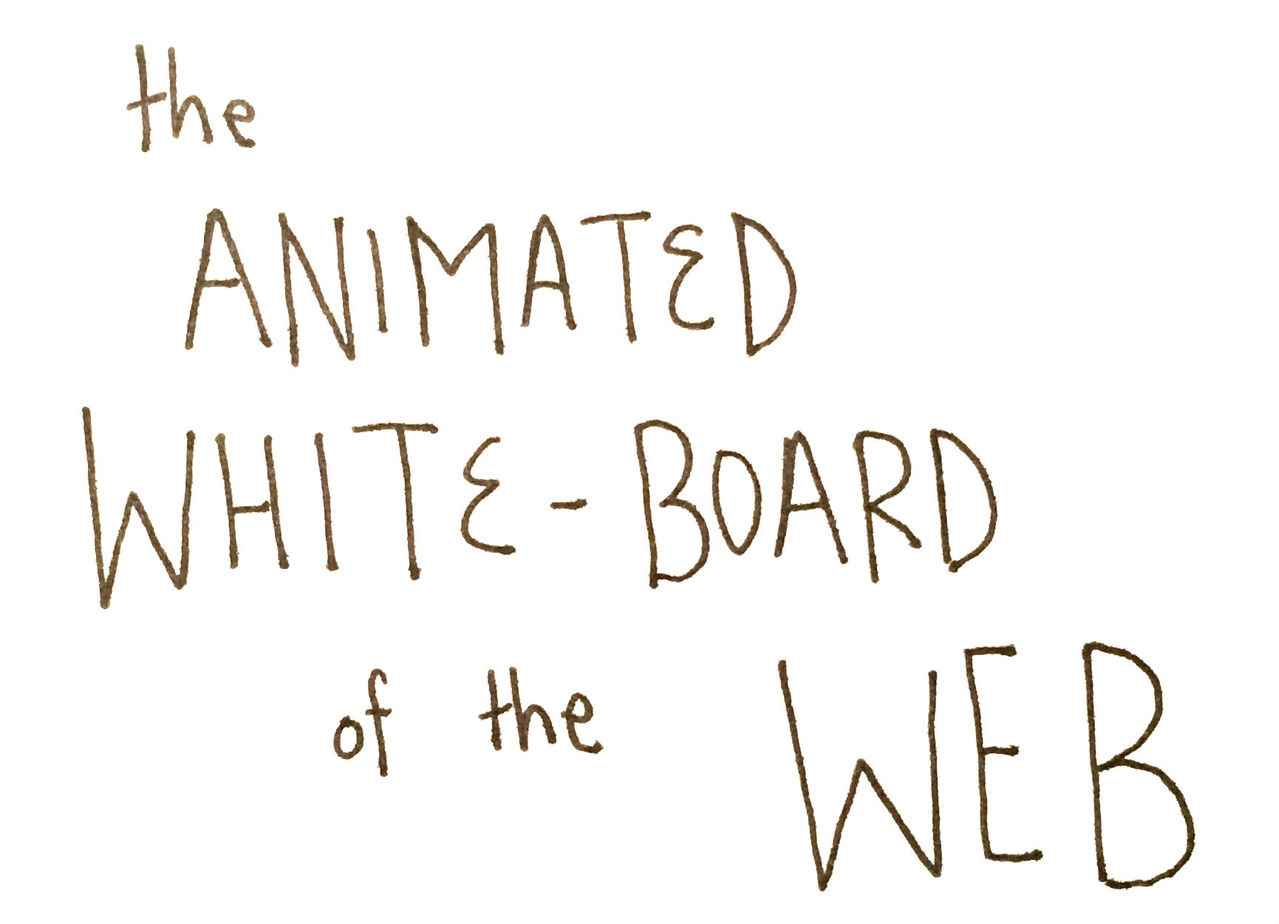 the
ANIMATED
WHITE-BOARD
of the WEB